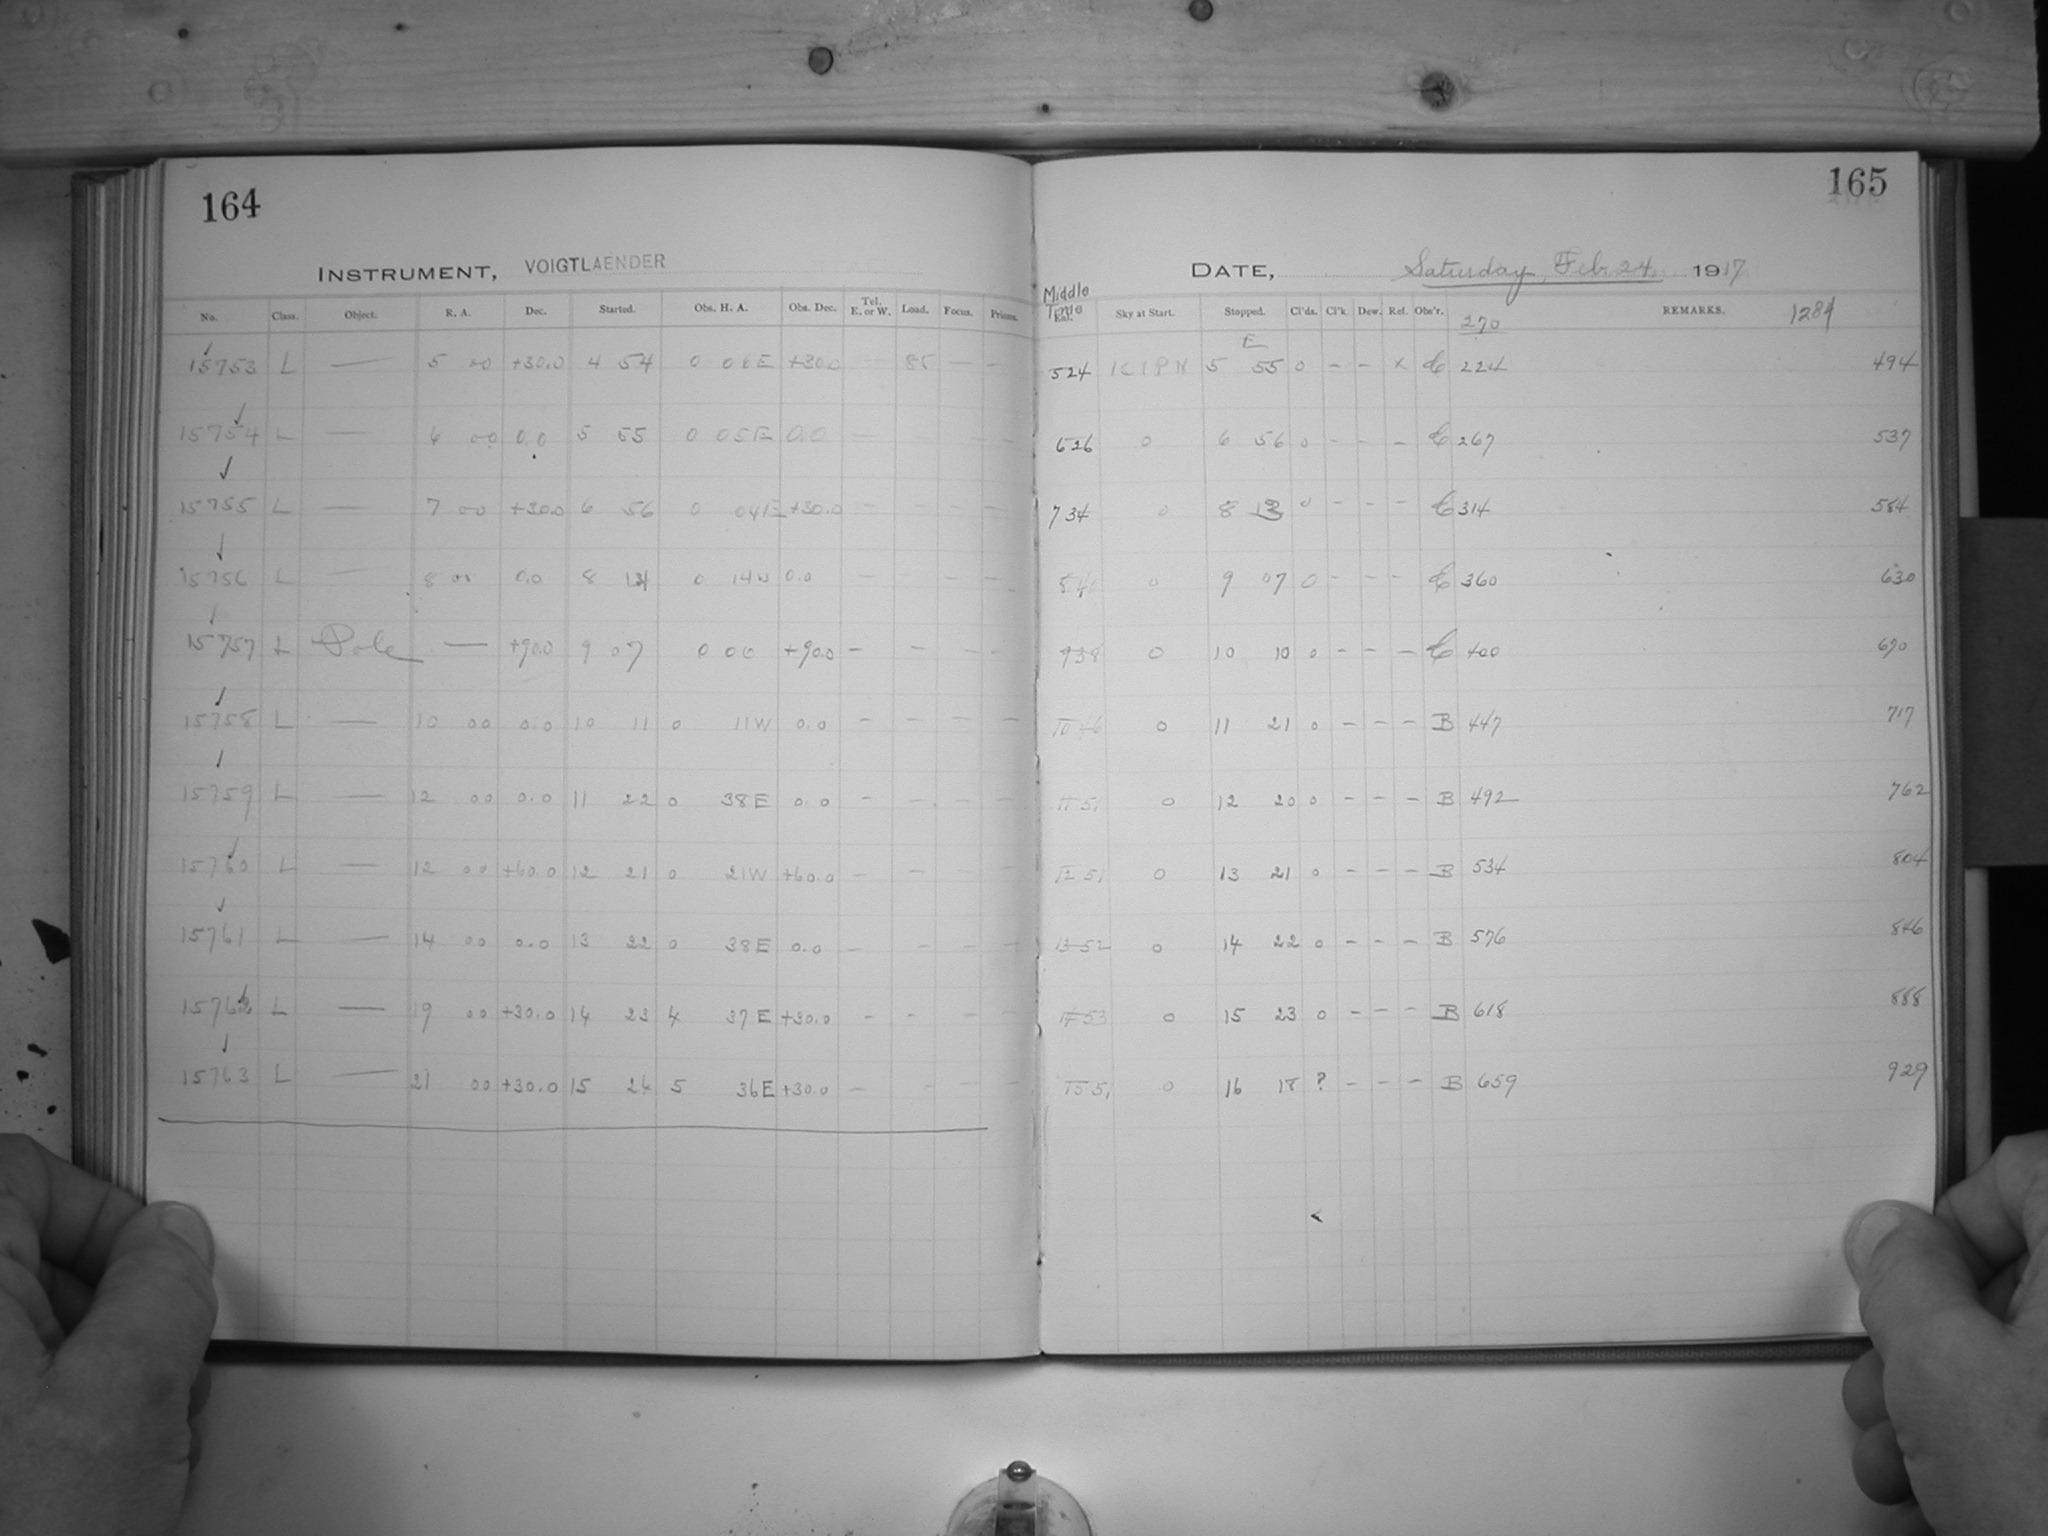 164
INSTRUMENT, VOIGTLAENDER
No. Class. Object. R. A. Dec. Started. Obs. H. A. Obs. Dec. Tel. E. or W. Load. Focus. Prisms.
15753 L — 5 00 +30.0 4 54 0 06E +30.0 — 85 — —
15754 L — 6 00 0.0 5 55 0 05E 0.0 — — —
15755 L — 7 00 +30.0 6 56 0 04E +30.0 — — — —
15756 L — 8 00 0.0 8 14 0 14W 0.0 — — — —
15757 L Pole — +90.0 9 07 0 00 +90.0 — — — —
15758 L — 10 00 0.0 10 11 0 11W 0.0 — — — —
15759 L — 12 00 0.0 11 22 0 38E 0.0 — — — —
15760 L — 12 00 +60.0 12 21 0 21W +60.0 — — — —
15761 L — 14 00 0.0 13 22 0 38E 0.0 — — — —
15762 L — 19 00 +30.0 14 23 4 37E +30.0 — — — —
15763 L — 21 00 +30.0 15 24 5 36E +30.0 — — — —
165
DATE, Saturday, Feb. 24, 1917
Middle Time Sky at Start. Stopped. Cl'ds. Cl'k Dew. Ref. Obs'r. 270 REMARKS. 1284
E
524 5 55 0 – – x C 224 494
626 0 6 56 0 – – – C 267 537
734 0 8 13 0 – – – C 314 584
0 9 07 0 – – – C 360 630
938 0 10 10 0 – – – C 400 670
10 46 0 11 21 0 – – – B 447 717
11 51 0 12 20 0 – – – B 492 762
12 51 0 13 21 0 – – – B 534 804
13 52 0 14 22 0 – – – B 576 846
14 53 0 15 23 0 – – – B 618 888
15 51 0 16 18 ? – – – B 659 929